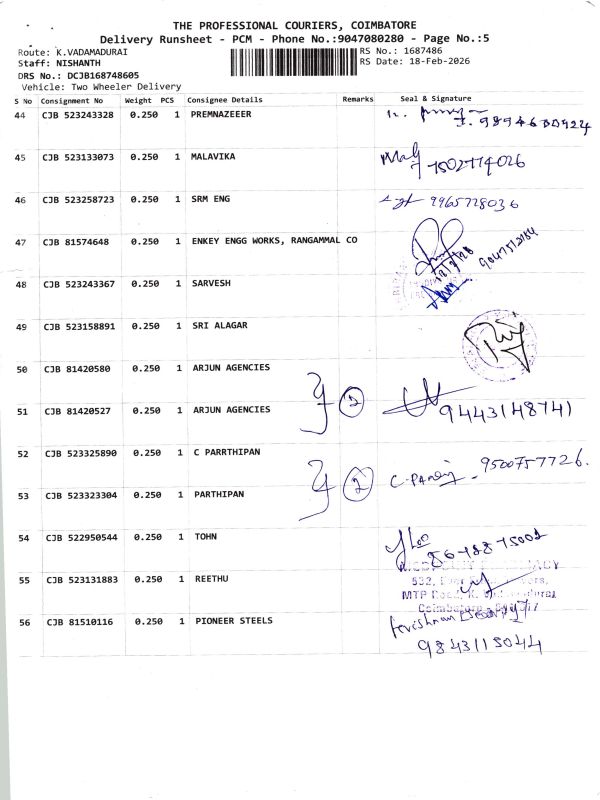 THE PROFESSIONAL COURIERS, COIMBATORE
Delivery Runsheet - PCM - Phone No.:9047080280 - Page No.:5
Route: K.VADAMADURAI RS No.: 1687486
Staff: NISHANTH RS Date: 18-Feb-2026
DRS No.: DCJB168748605
Vehicle: Two Wheeler Delivery
S No Consignment No Weight PCS Consignee Details Remarks Seal & Signature
44 CJB 523243328 0.250 1 PREMNAZEEER
45 CJB 523133073 0.250 1 MALAVIKA
46 CJB 523258723 0.250 1 SRM ENG 9965728036
47 CJB 81574648 0.250 1 ENKEY ENGG WORKS, RANGAMMAL CO
48 CJB 523243367 0.250 1 SARVESH
49 CJB 523158891 0.250 1 SRI ALAGAR
50 CJB 81420580 0.250 1 ARJUN AGENCIES
51 CJB 81420527 0.250 1 ARJUN AGENCIES 2 9443148741
52 CJB 523325890 0.250 1 C PARRTHIPAN
53 CJB 523323304 0.250 1 PARTHIPAN 2 9500757726.
54 CJB 522950544 0.250 1 TOHN
55 CJB 523131883 0.250 1 REETHU
532,
MTP Road, K.
Coimbatore
56 CJB 81510116 0.250 1 PIONEER STEELS
9843115044